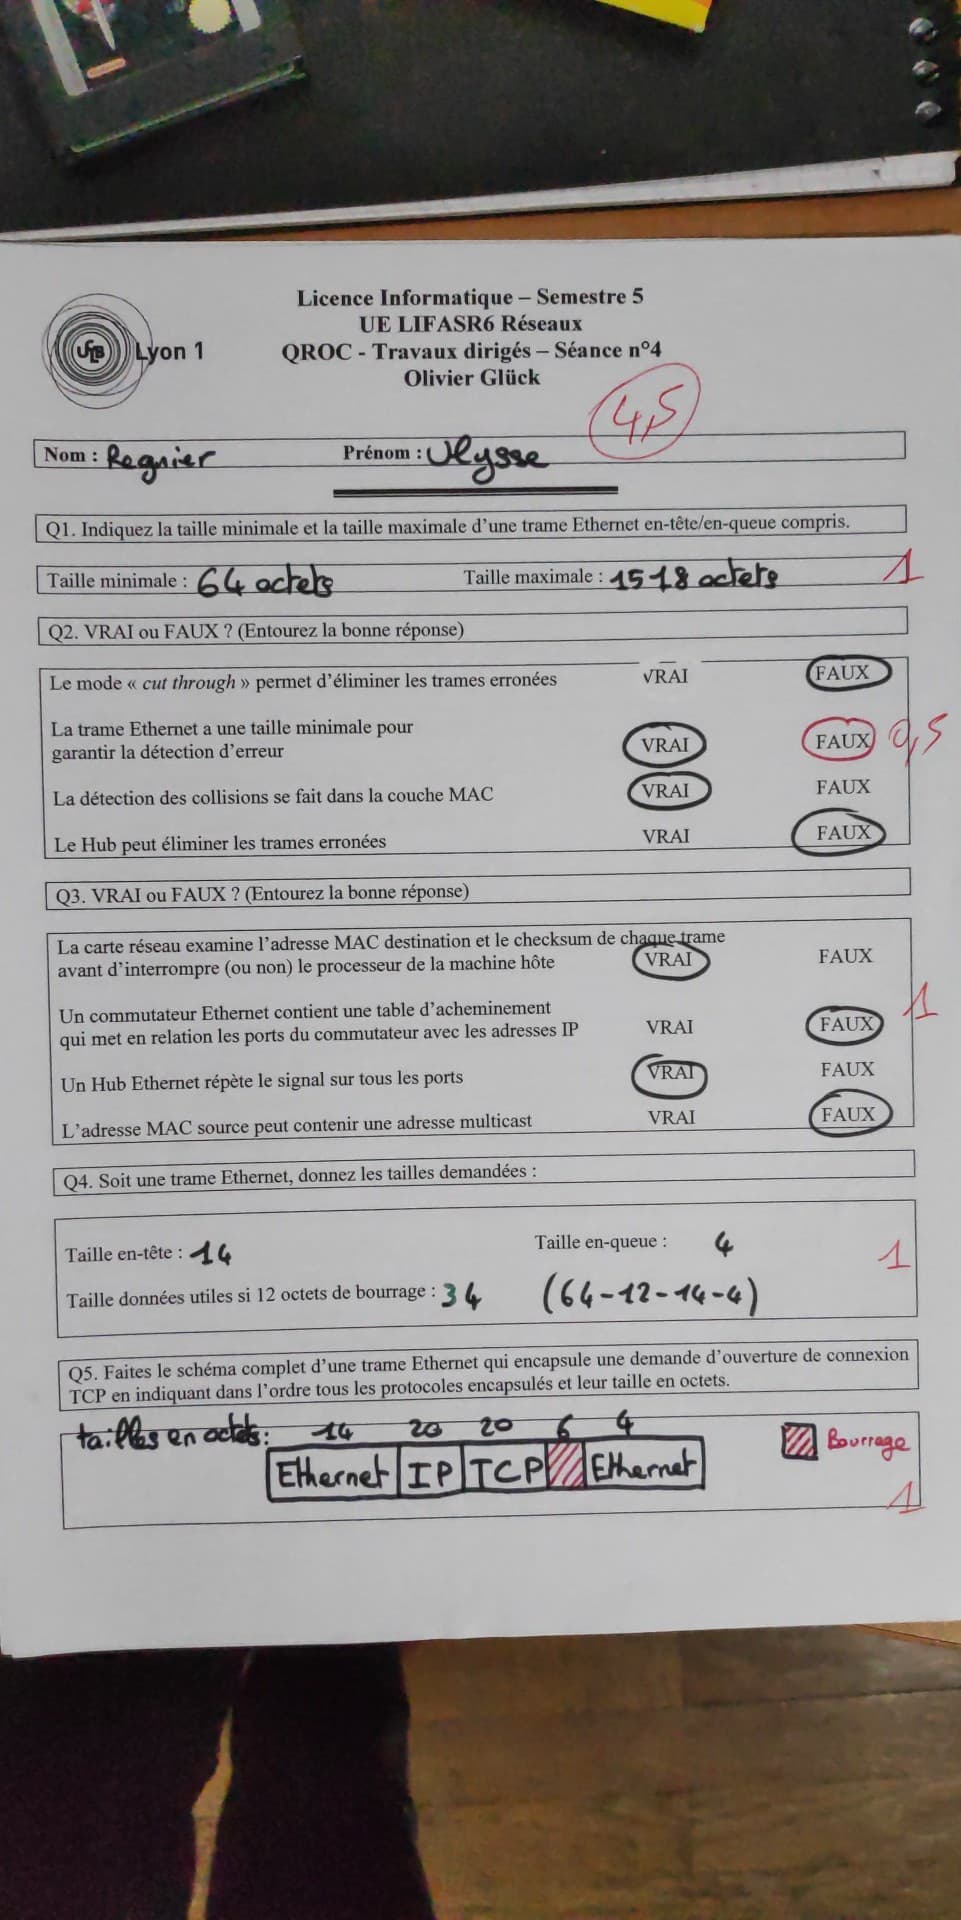 Licence Informatique – Semestre 5
UE LIFASR6 Réseaux
QROC - Travaux dirigés – Séance n°4
Olivier Glück
UCB Lyon 1
4,5
Nom : Regnier Prénom : Ulysse
Q1. Indiquez la taille minimale et la taille maximale d'une trame Ethernet en-tête/en-queue compris.
Taille minimale : 64 octets Taille maximale : 1518 octets 1
Q2. VRAI ou FAUX ? (Entourez la bonne réponse)
Le mode « cut through » permet d'éliminer les trames erronées VRAI FAUX
La trame Ethernet a une taille minimale pour
garantir la détection d'erreur VRAI FAUX 0,5
La détection des collisions se fait dans la couche MAC VRAI FAUX
Le Hub peut éliminer les trames erronées VRAI FAUX
Q3. VRAI ou FAUX ? (Entourez la bonne réponse)
La carte réseau examine l'adresse MAC destination et le checksum de chaque trame
avant d'interrompre (ou non) le processeur de la machine hôte VRAI FAUX
Un commutateur Ethernet contient une table d'acheminement
qui met en relation les ports du commutateur avec les adresses IP VRAI FAUX 1
Un Hub Ethernet répète le signal sur tous les ports VRAI FAUX
L'adresse MAC source peut contenir une adresse multicast VRAI FAUX
Q4. Soit une trame Ethernet, donnez les tailles demandées :
Taille en-tête : 14 Taille en-queue : 4 1
Taille données utiles si 12 octets de bourrage : 34 (64-12-14-4)
Q5. Faites le schéma complet d'une trame Ethernet qui encapsule une demande d'ouverture de connexion
TCP en indiquant dans l'ordre tous les protocoles encapsulés et leur taille en octets.
tailles en octets: 14 20 20 6 4
Ethernet IP TCP Ethernet Bourrage
1